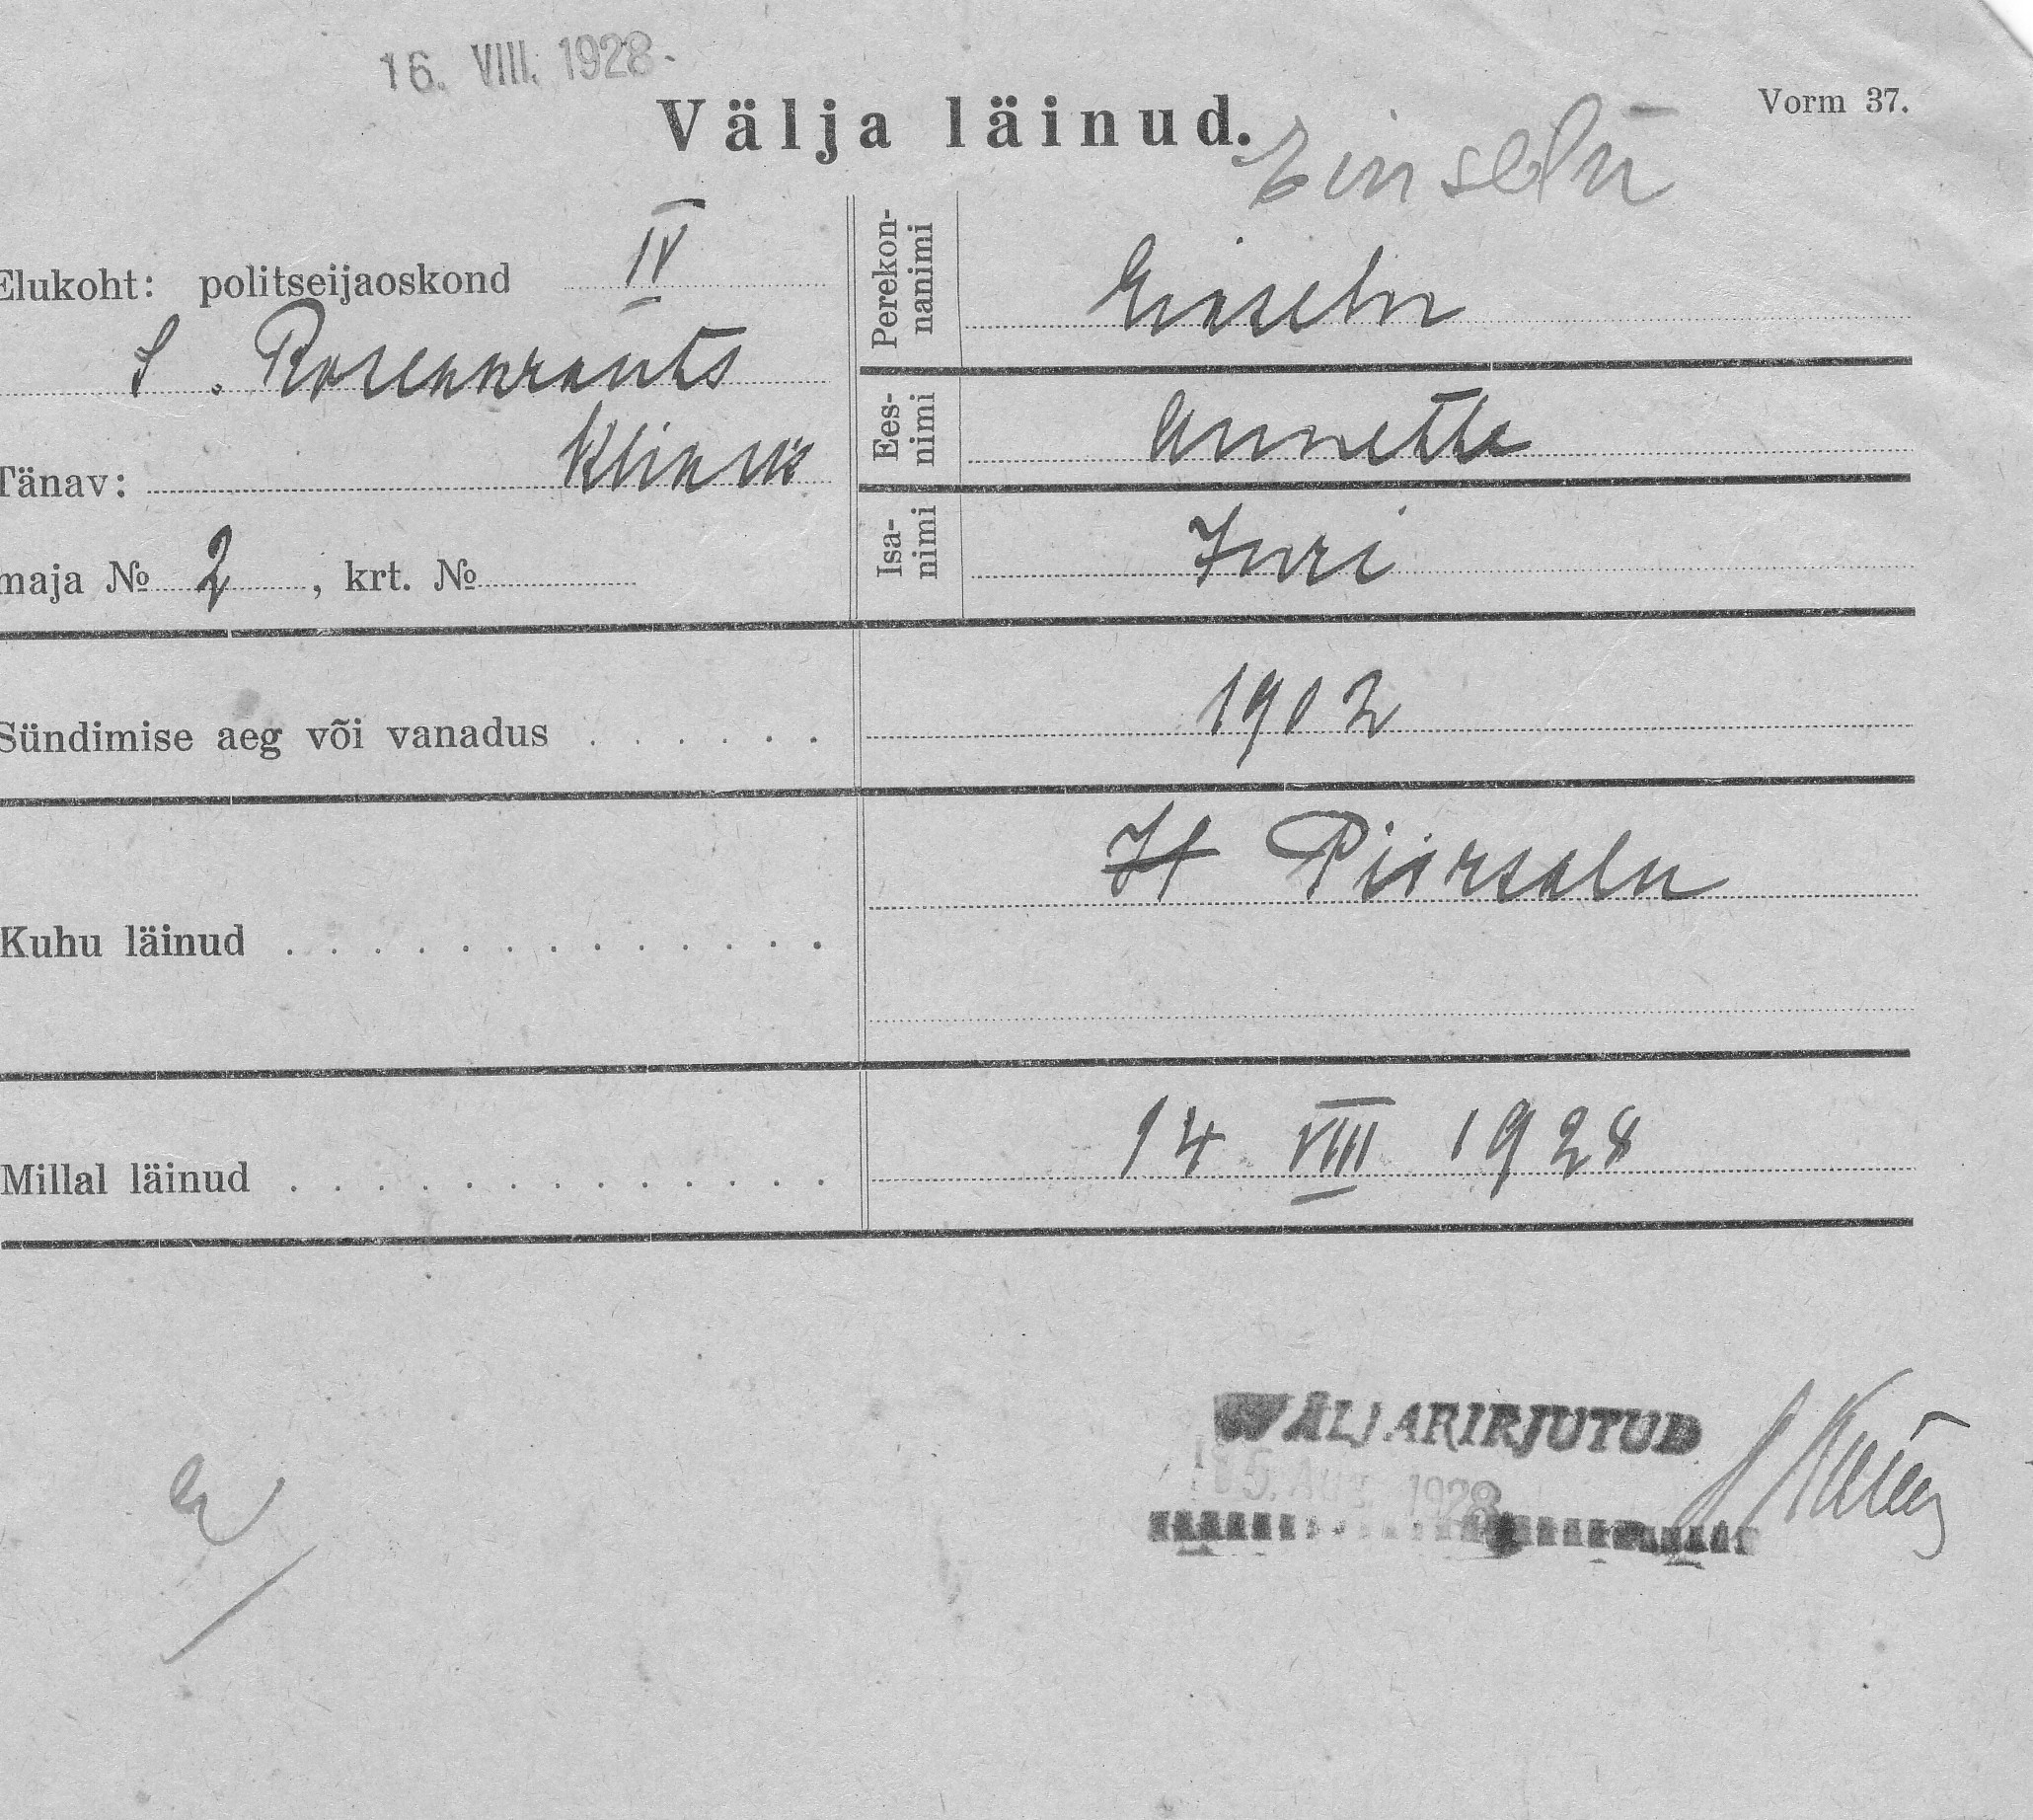 16. VIII. 1928.
Välja läinud.
Vorm 37.
Einseln
Elukoht: politseijaoskond IV
S. Rosenkrants
Tänav:
maja № 2, krt. №
Perekon-
nanimi
Einseln
Ees-
nimi
Annette
Isa-
nimi
Juri
Sündimise aeg või vanadus
1902
Kuhu läinud
Piirsalu
Millal läinud
14 VIII 1928
WÄLJARIRJUTUD
AUG. 1928